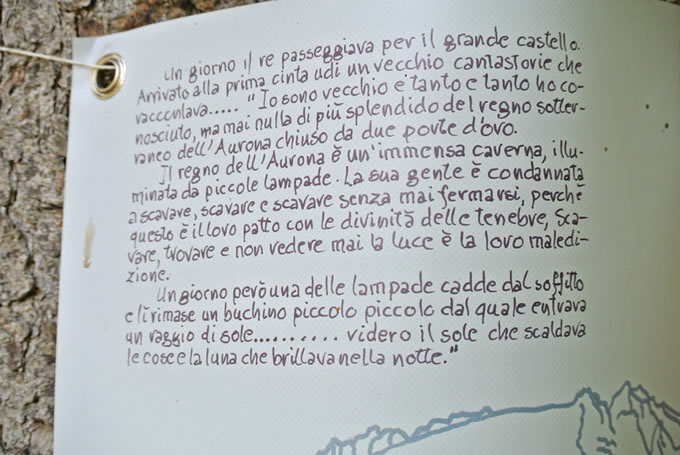 Un giorno il re passeggiava per il grande castello.
Arrivato alla prima cinta udì un vecchio cantastorie che
raccontava..... "Io sono vecchio e tanto e tanto ho co-
nosciuto, ma mai nulla di più splendido del regno sotter-
raneo dell'Aurona chiuso da due porte d'oro.
Il regno dell'Aurona è un'immensa caverna, illu-
minata da piccole lampade. La sua gente è condannata
a scavare, scavare e scavare senza mai fermarsi, perché
questo è il loro patto con le divinità delle tenebre, sca-
vare, trovare e non vedere mai la luce è la loro maledi-
zione.
Un giorno però una delle lampade cadde dal soffitto
e lì rimase un buchino piccolo piccolo dal quale entrava
un raggio di sole.......... videro il sole che scaldava
le cose e la luna che brillava nella notte."